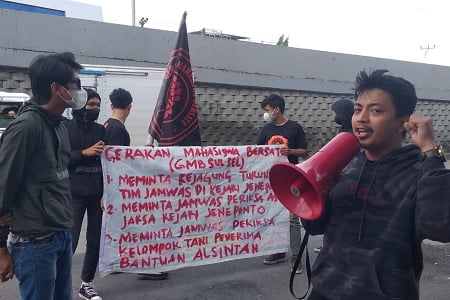 GERAKAN MAHASISWA BERSATU
(GMB SUL SEL)
1. MEMINTA KEJAGUNG TURUN
TIM JAMWAS DI KEJARI JENEPO
2. MEMINTA JAMWAS PERIKSA AS
JAKSA KEJARI JENEPONTO
3. MEMINTA JAMWAS PERIKSA
KELOMPOK TANI PENERIMA
BANTUAN ALSINTAN